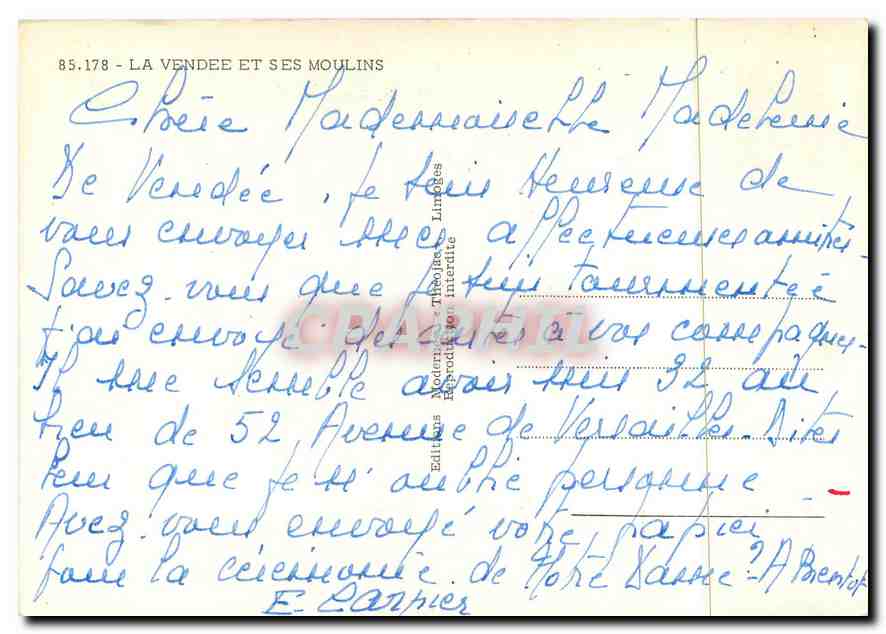 85.178 - LA VENDEE ET SES MOULINS
Chère Mademoiselle Madeleine
De Vendée, je suis Heureuse de
vous envoyer mes affectueuses amitiés.
Savez-vous que je suis Tourmentée
j'ai envoyé des cartes à vos compagnes.
Il me semble avoir mis 32 au
lieu de 52 Avenue de Versailles. Dites
leur que je n'oublie personne
Avez-vous envoyé votre papier
pour la cérémonie de Notre Dame? A Bientôt
E. Carpier
Editions Modernes Théojac, Limoges
Reproduction interdite
CPAPHIL